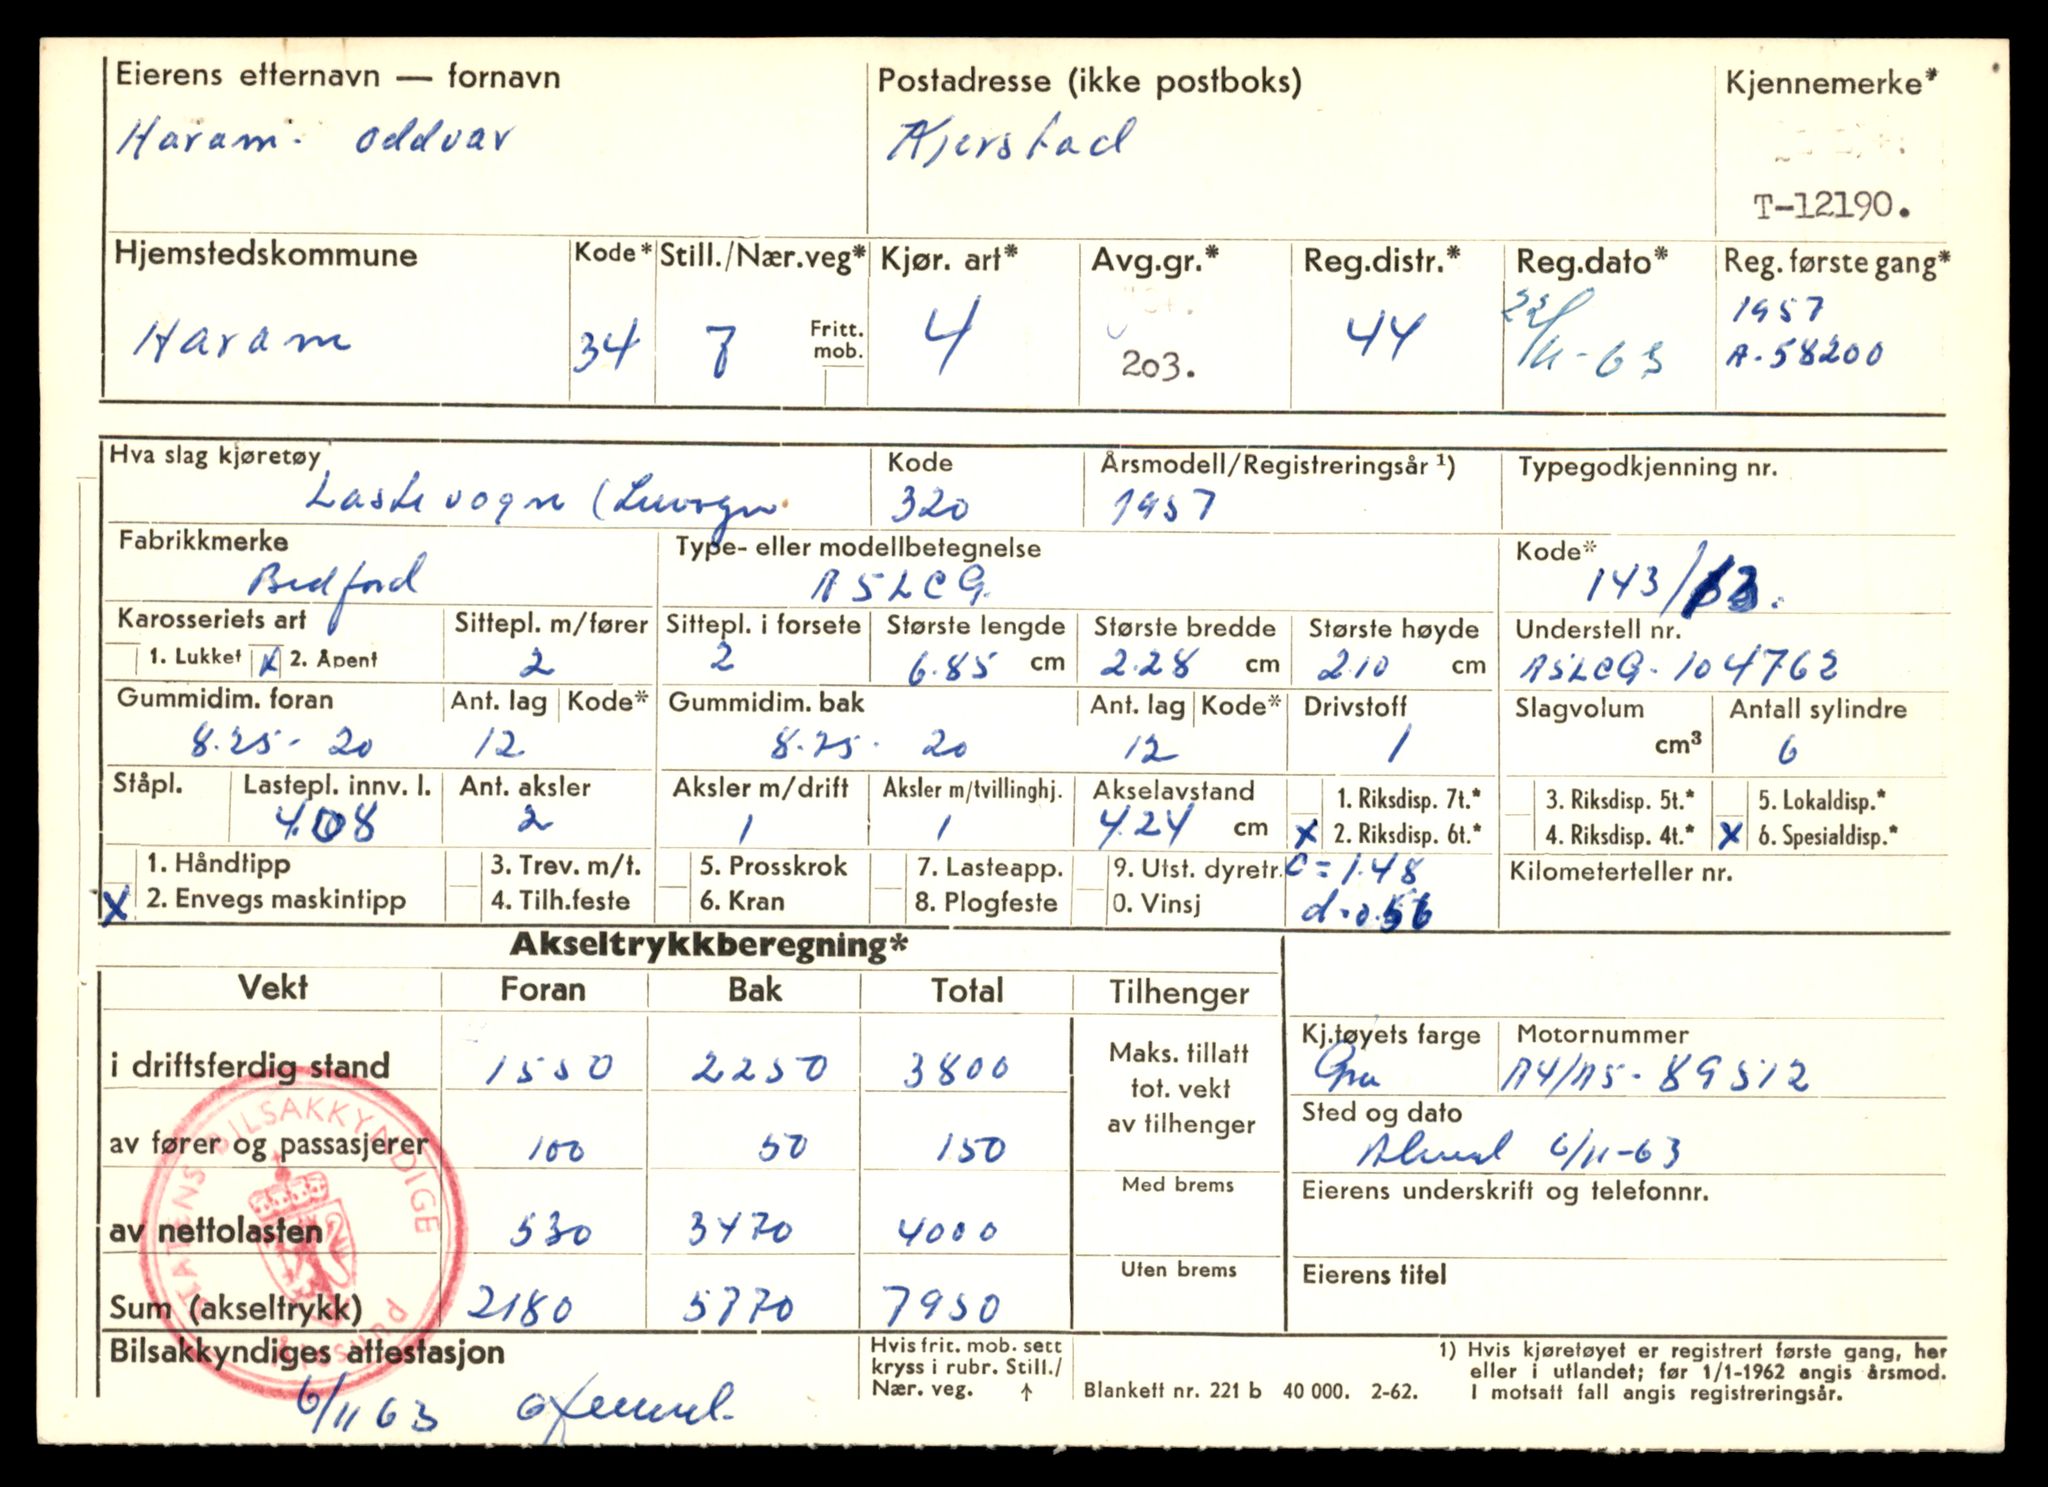 Eierens etternavn — fornavn Postadresse (ikke postboks) Kjennemerke*
Haram. Oddvar Kjerstad
T-12190.
Hjemstedskommune Kode* Still./Nær.veg* Kjør. art* Avg.gr.* Reg.distr.* Reg.dato* Reg. første gang*
Haram 34 7 Fritt. mob. 4 203. 44 22/11-63 1957
A-58200
Hva slag kjøretøy Kode Årsmodell/Registreringsår 1) Typegodkjenning nr.
Lastevogn 320 1957
Fabrikkmerke Type- eller modellbetegnelse Kode*
Bedford A5LCG 143/
Karosseriets art Sittepl. m/fører Sittepl. i forsete Største lengde Største bredde Største høyde Understell nr.
1. Lukket X 2. Åpent 2 2 6.85 cm 2.28 cm 210 cm A5LCG-104762
Gummidim. foran Ant. lag Kode* Gummidim. bak Ant. lag Kode* Drivstoff Slagvolum Antall sylindre
8.25-20 12 8.25-20 12 1 cm³ 6
Ståpl. Lastepl. innv. l. Ant. aksler Aksler m/drift Aksler m/tvillinghj. Akselavstand 1. Riksdisp. 7t.* 3. Riksdisp. 5t.* 5. Lokaldisp.*
4.08 2 1 1 4.24 cm X 2. Riksdisp. 6t.* 4. Riksdisp. 4t.* X 6. Spesialdisp.*
1. Håndtipp 3. Trev. m/t. 5. Prosskrok 7. Lasteapp. 9. Utst. dyretr. c=1.48 Kilometerteller nr.
X 2. Envegs maskintipp 4. Tilh.feste 6. Kran 8. Plogfeste 0. Vinsj d=0.56
Akseltrykkberegning*
Vekt Foran Bak Total Tilhenger
i driftsferdig stand 1550 2250 3800 Maks. tillatt tot. vekt av tilhenger
Kj.tøyets farge Motornummer
A4/A5-89512
av fører og passasjerer 100 50 150
Sted og dato
6/11-63
Med brems
Eierens underskrift og telefonnr.
av nettolasten 530 3470 4000
Uten brems
Eierens titel
Sum (akseltrykk) 2180 5770 7950
STATENS BILSAKKYNDIGE
Bilsakkyndiges attestasjon
6/11 63
Hvis frit. mob. sett
kryss i rubr. Still./
Nær. veg. ↑
Blankett nr. 221 b 40 000. 2-62.
1) Hvis kjøretøyet er registrert første gang, her
eller i utlandet; før 1/1-1962 angis årsmod.
I motsatt fall angis registreringsår.